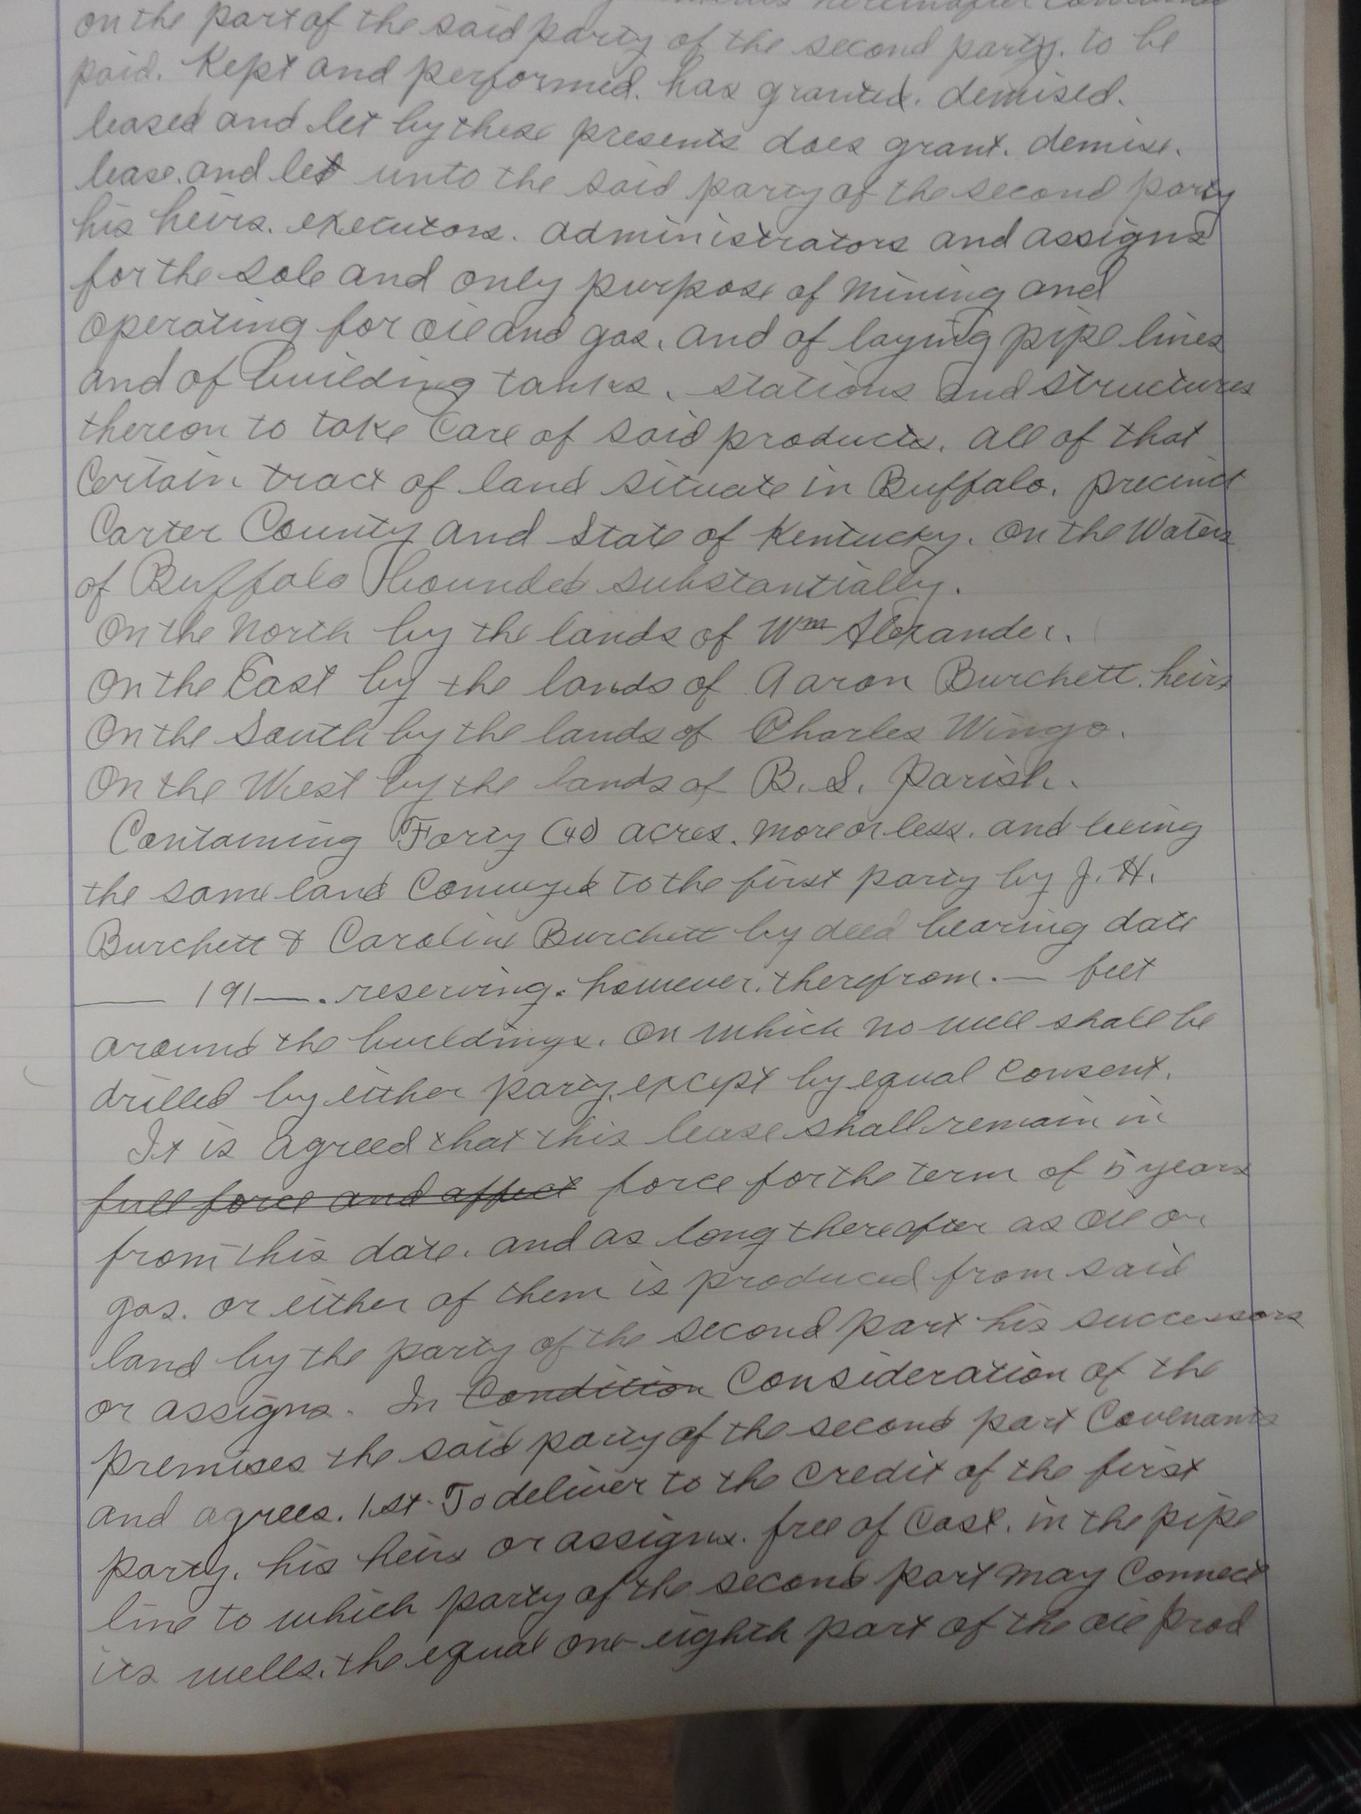 hereinafter contained
on the part of the said party of the second party. to be
paid. Kept and performed. has granted. demised.
leased and let by these presents does grant. demise.
lease. and let unto the said party of the second party
his heirs. executors. administrators and assigns
for the sole and only purpose of mining and
operating for oil and gas. and of laying pipe lines
and of building tanks. stations and structures
thereon to take Care of said products. all of that
Certain tract of land situate in Buffalo. precinct
Carter County and State of Kentucky. on the Waters
of Buffalo bounded substantially.
On the North by the lands of Wm Alexander.
On the East by the lands of Aaron Burchett. heirs
On the South by the lands of Charles Wingo.
On the West by the lands of B. S. Parish.
Containing Forty (40) acres. more or less. and being
the same land Conveyed to the first party by J. H.
Burchett & Caroline Burchett by deed bearing date
___ 191__. reserving. however. therefrom. — feet
around the buildings. On which no well shall be
drilled by either party. except by equal Consent.
It is agreed that this lease shall remain in
full force and affect force for the term of 5 years
from this date. and as long thereafter as oil or
gas. or either of them is produced from said
land by the party of the second part his successors
or assigns. In Condition Consideration of the
premises the said party of the second part Covenants
and agrees. 1st. To deliver to the Credit of the first
party. his heirs or assigns. free of Cost. in the pipe
line to which party of the second part may Connect
its wells. the equal one-eighth part of the oil prod